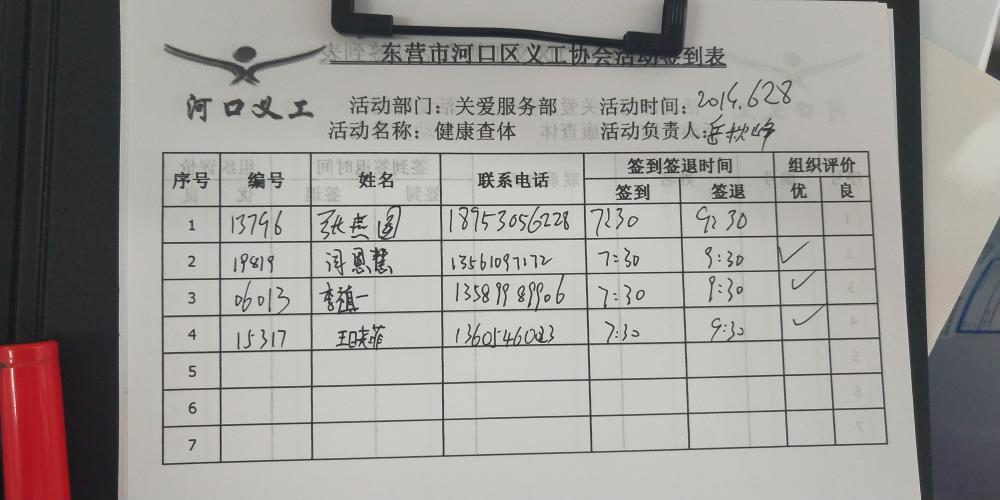 东营市河口区义工协会活动签到表
河口义工
活动部门：关爱服务部 活动时间：2014.628
活动名称：健康查体 活动负责人：岳秋峰
序号 编号 姓名 联系电话 签到签退时间 组织评价
签到 签退 优 良
1 13796 张燕圆 18953056228 7:30 9:30
2 19819 闫恩慧 13561097172 7:30 9:30 ✓
3 06013 李道一 13589989906 7:30 9:30 ✓
4 15317 王晓菲 13605460023 7:30 9:30 ✓
5
6
7